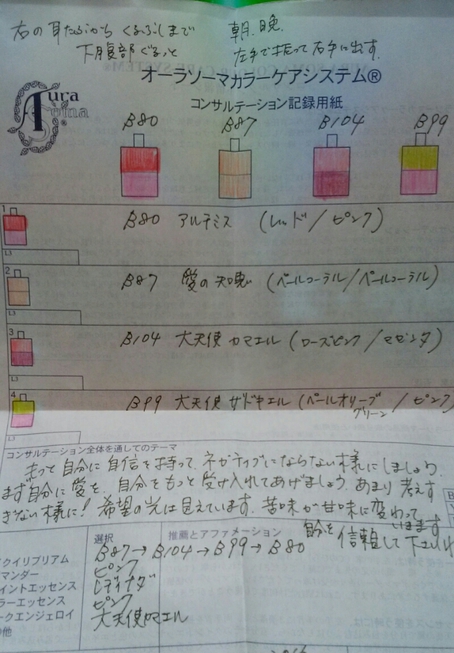 右の耳たぶから くるぶしまで
下腹部 ぐるっと
朝. 晩.
左手で振って右手に出す.
オーラソーマカラーケアシステム®
コンサルテーション記録用紙
Aura
B80 B87 B104 B99
1
B80 アルテミス (レッド/ピンク)
2
B87 愛の知恵 (ペールコーラル/ペールコーラル)
3
B104 大天使 カマエル (ローズピンク/マゼンタ)
4
B99 大天使 ザドキエル (ペールオリーブグリーン/ピンク)
コンサルテーション全体を通してのテーマ
もって自分に自信を持って、ネガティブにならない様にしましょう。
まず自分に愛を。自分をもっと受け入れてあげましょう。あまり考えす
ぎない様に! 希望の光は見えています。苦味が甘味に変わって
います
自分を信頼して下さい
選択
推薦とアファメーション
B87→B104→B99→B80
クイリブリアム
ピンク
マンダー
イントエッセンス
ラーエッセンス
ピンク
ークエンジェロイ
大天使カマエル
の他